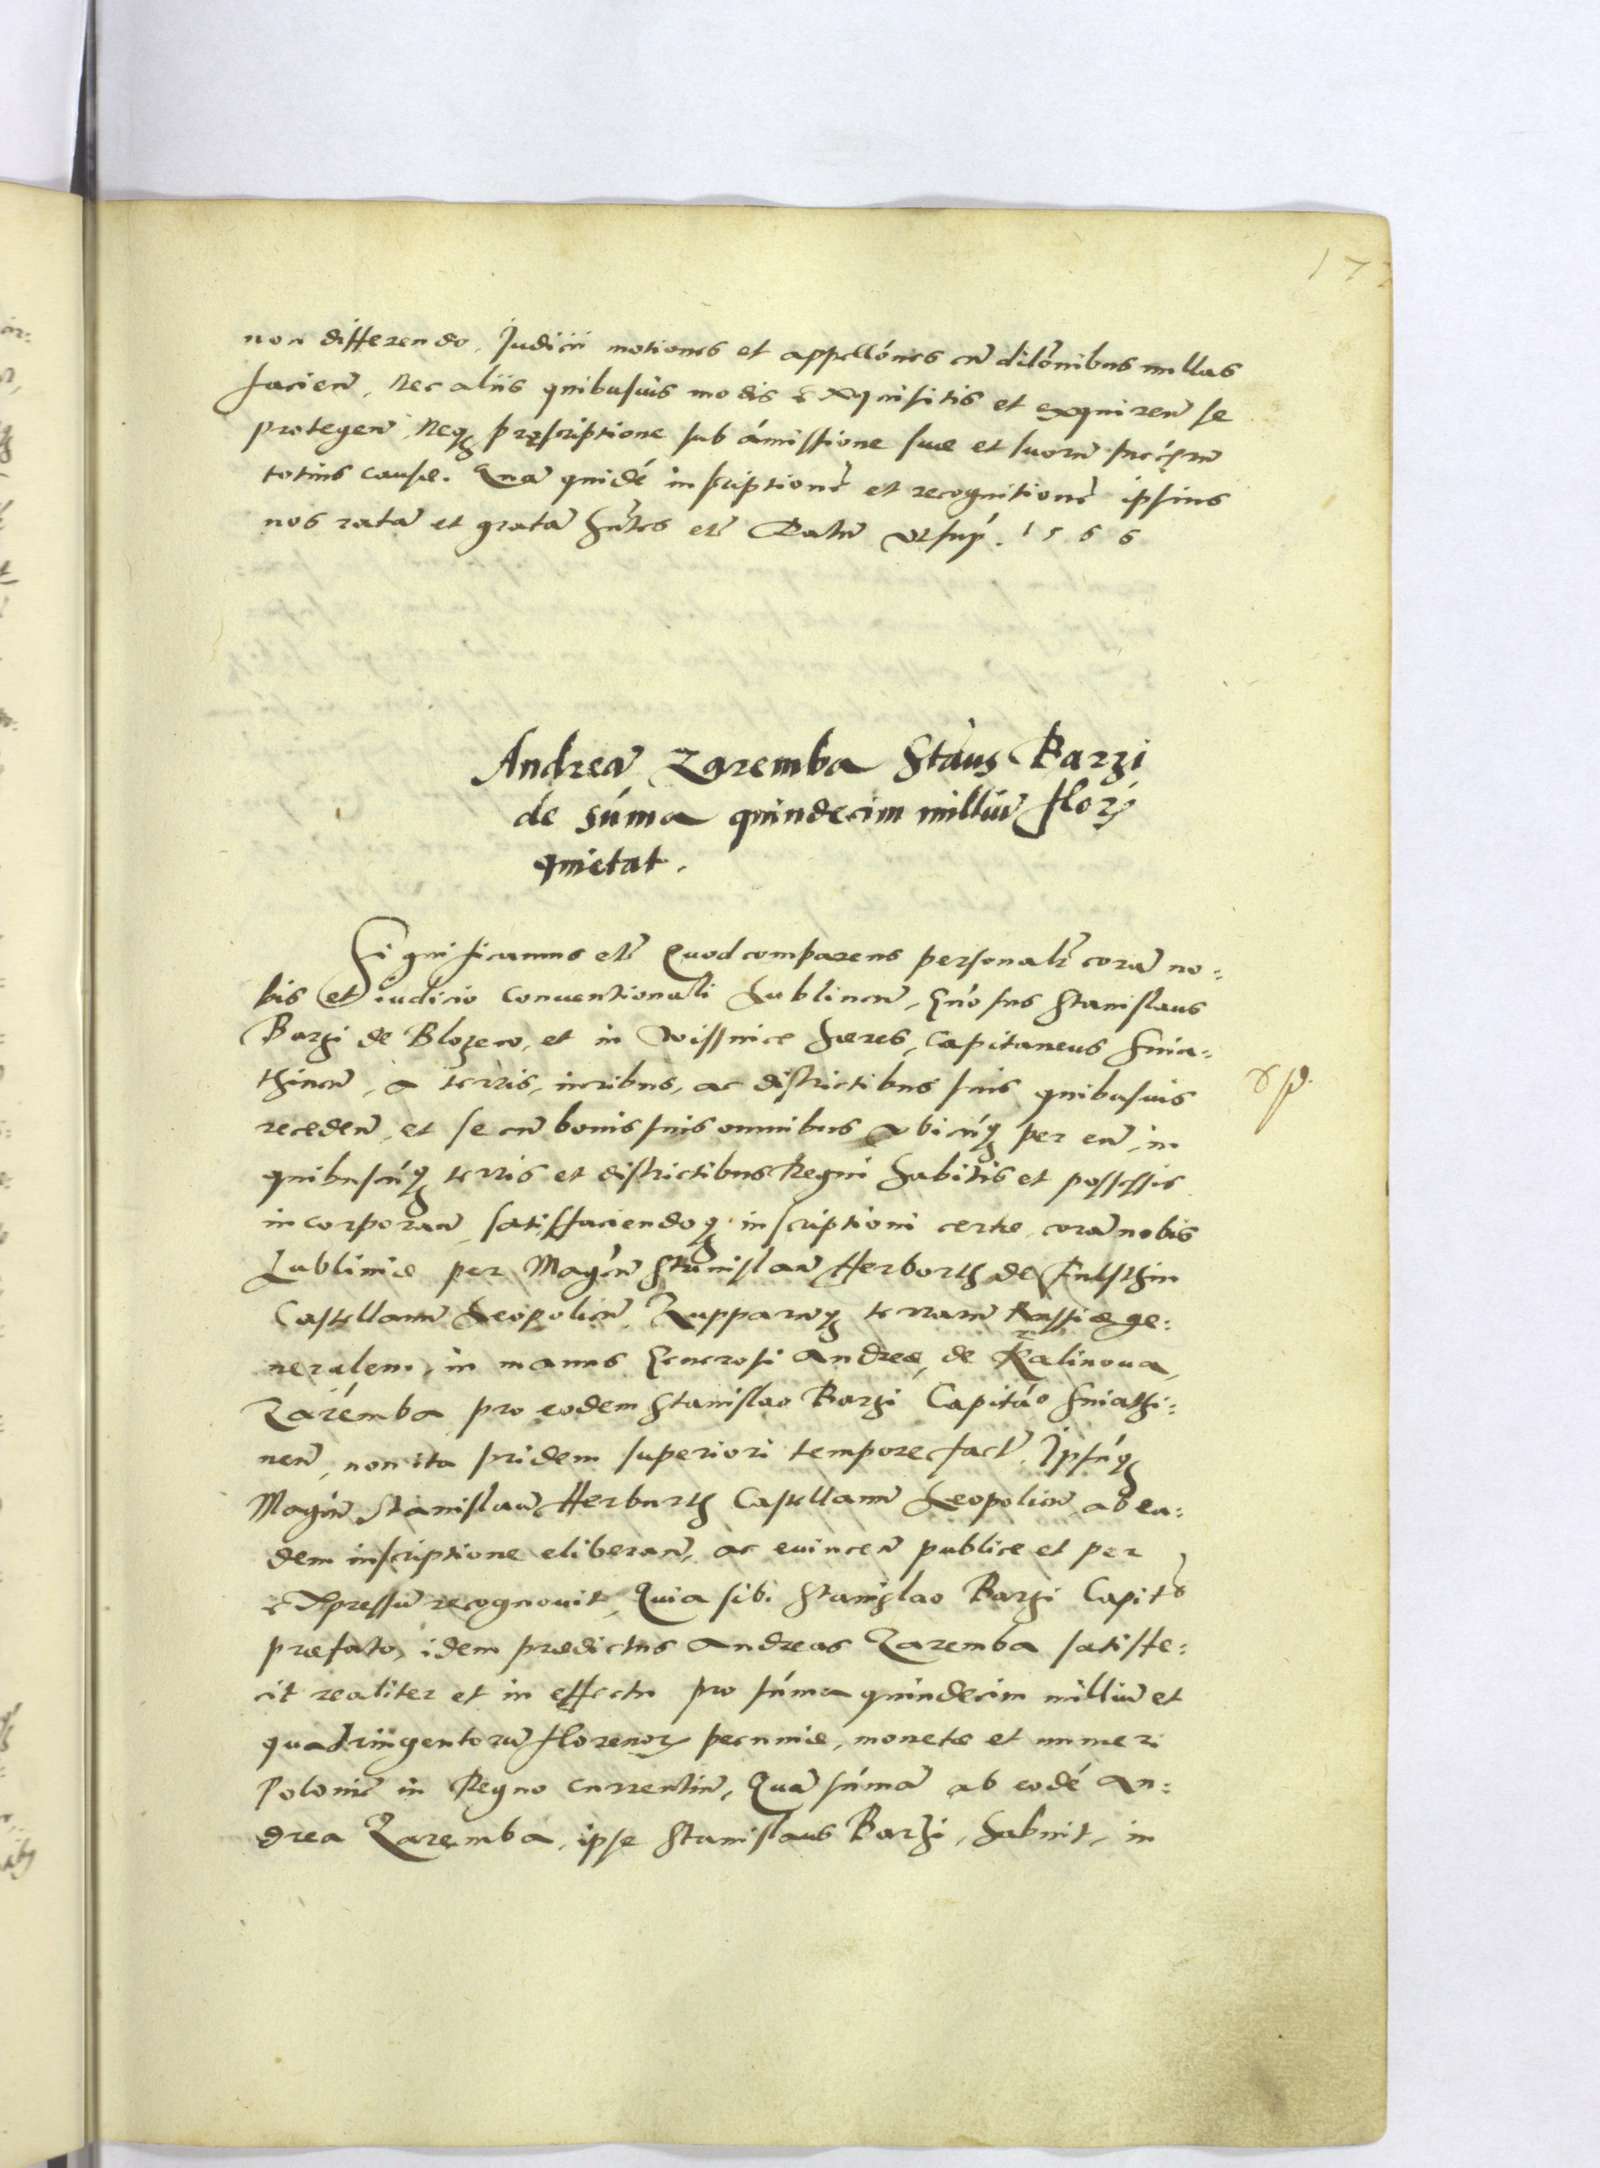 17
non differendo, Judicii motiones et appellones cũ dilõnibus nullas
facieñ, Nec aliis quibusuis modis exquisitis et exquireñ se
protegeñ, Neq₃ pręscriptione sub ámissione suæ et suorũ succ̃orũ
totius causæ. Quã quidé inscriptionẽ et recognitionẽ ipsius
nos ratã et gratã hñtes etc̃ Datũ ut sup̃. 1566
Andreã Zaremba Staũs Barzi
de súma quindecim milliũ floꝝ
quietat.
Significamus etc̃ Quod comparens personalr̃ corã no:
bis et iudicio conuentionali Lublineñ, Gñosus Stanislaus
Barzi de Blozew, et in Wissnice hæres, Capitaneus Snia:
thineñ, a terris, iuribus, ac districtibus suis quibusuis
recedeñ, et se cũ bonis suis omnibus vbicúq₃ per eũ, in
quibuscúq₃ terris et districtibus Regni habitis et possessis
incorporañ, satisfaciendoq₃ inscriptioni certæ, corã nobis
Lubliniæ per Magcũ Stanislaũ Herborth de Fulsthin
Castellanũ Leopolieñ, Zupparúq₃ terrarũ Russiæ ge:
neralem, in manus Generosi Andreæ, de Kalinoua,
Zarémba pro eodem Stanislao Barzi Capitáo Sniathi:
neñ, non ita pridem superiori tempore fact̃, Ipsúq₃
Magcũ Stanislaũ Herburth Castellanũ Leopolieñ, ab ea:
dem inscriptione eliberañ, ac euinceñ publice et per
expressũ recognouit, Quia sibi Stanislao Barzi Capitõ
præfato, idem prædictus Andreas Zaremba satisfe:
cit realiter et in effectu pro súma quindecim milliũ et
quadringentorũ florenoꝝ pecuniæ, monetæ et numeri
Polonic̃ in Regno currentiũ, Quã súmã ab eodé An:
drea Zaremba, ipse Stanislaus Barzi, habuit, in